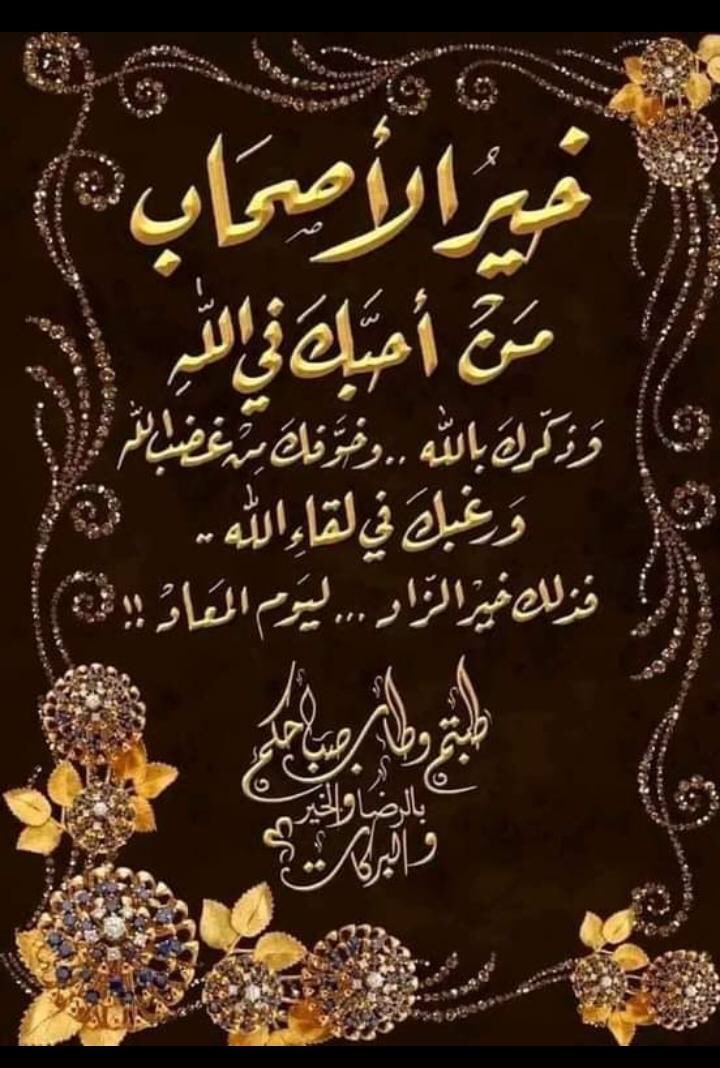 خيرُ الأصحَاب
مَنْ أحبَّكَ في اللّهِ
وَذكّركَ بالله .. وخوَّفكَ مِنْ غضبِ الله
وَرغبكَ في لقاءِ الله ..
فذلك خيْر الزّاد ... ليَوم المعَادْ !!
طبتم وطاب صباحكم
بالرضا والخير
والبركات